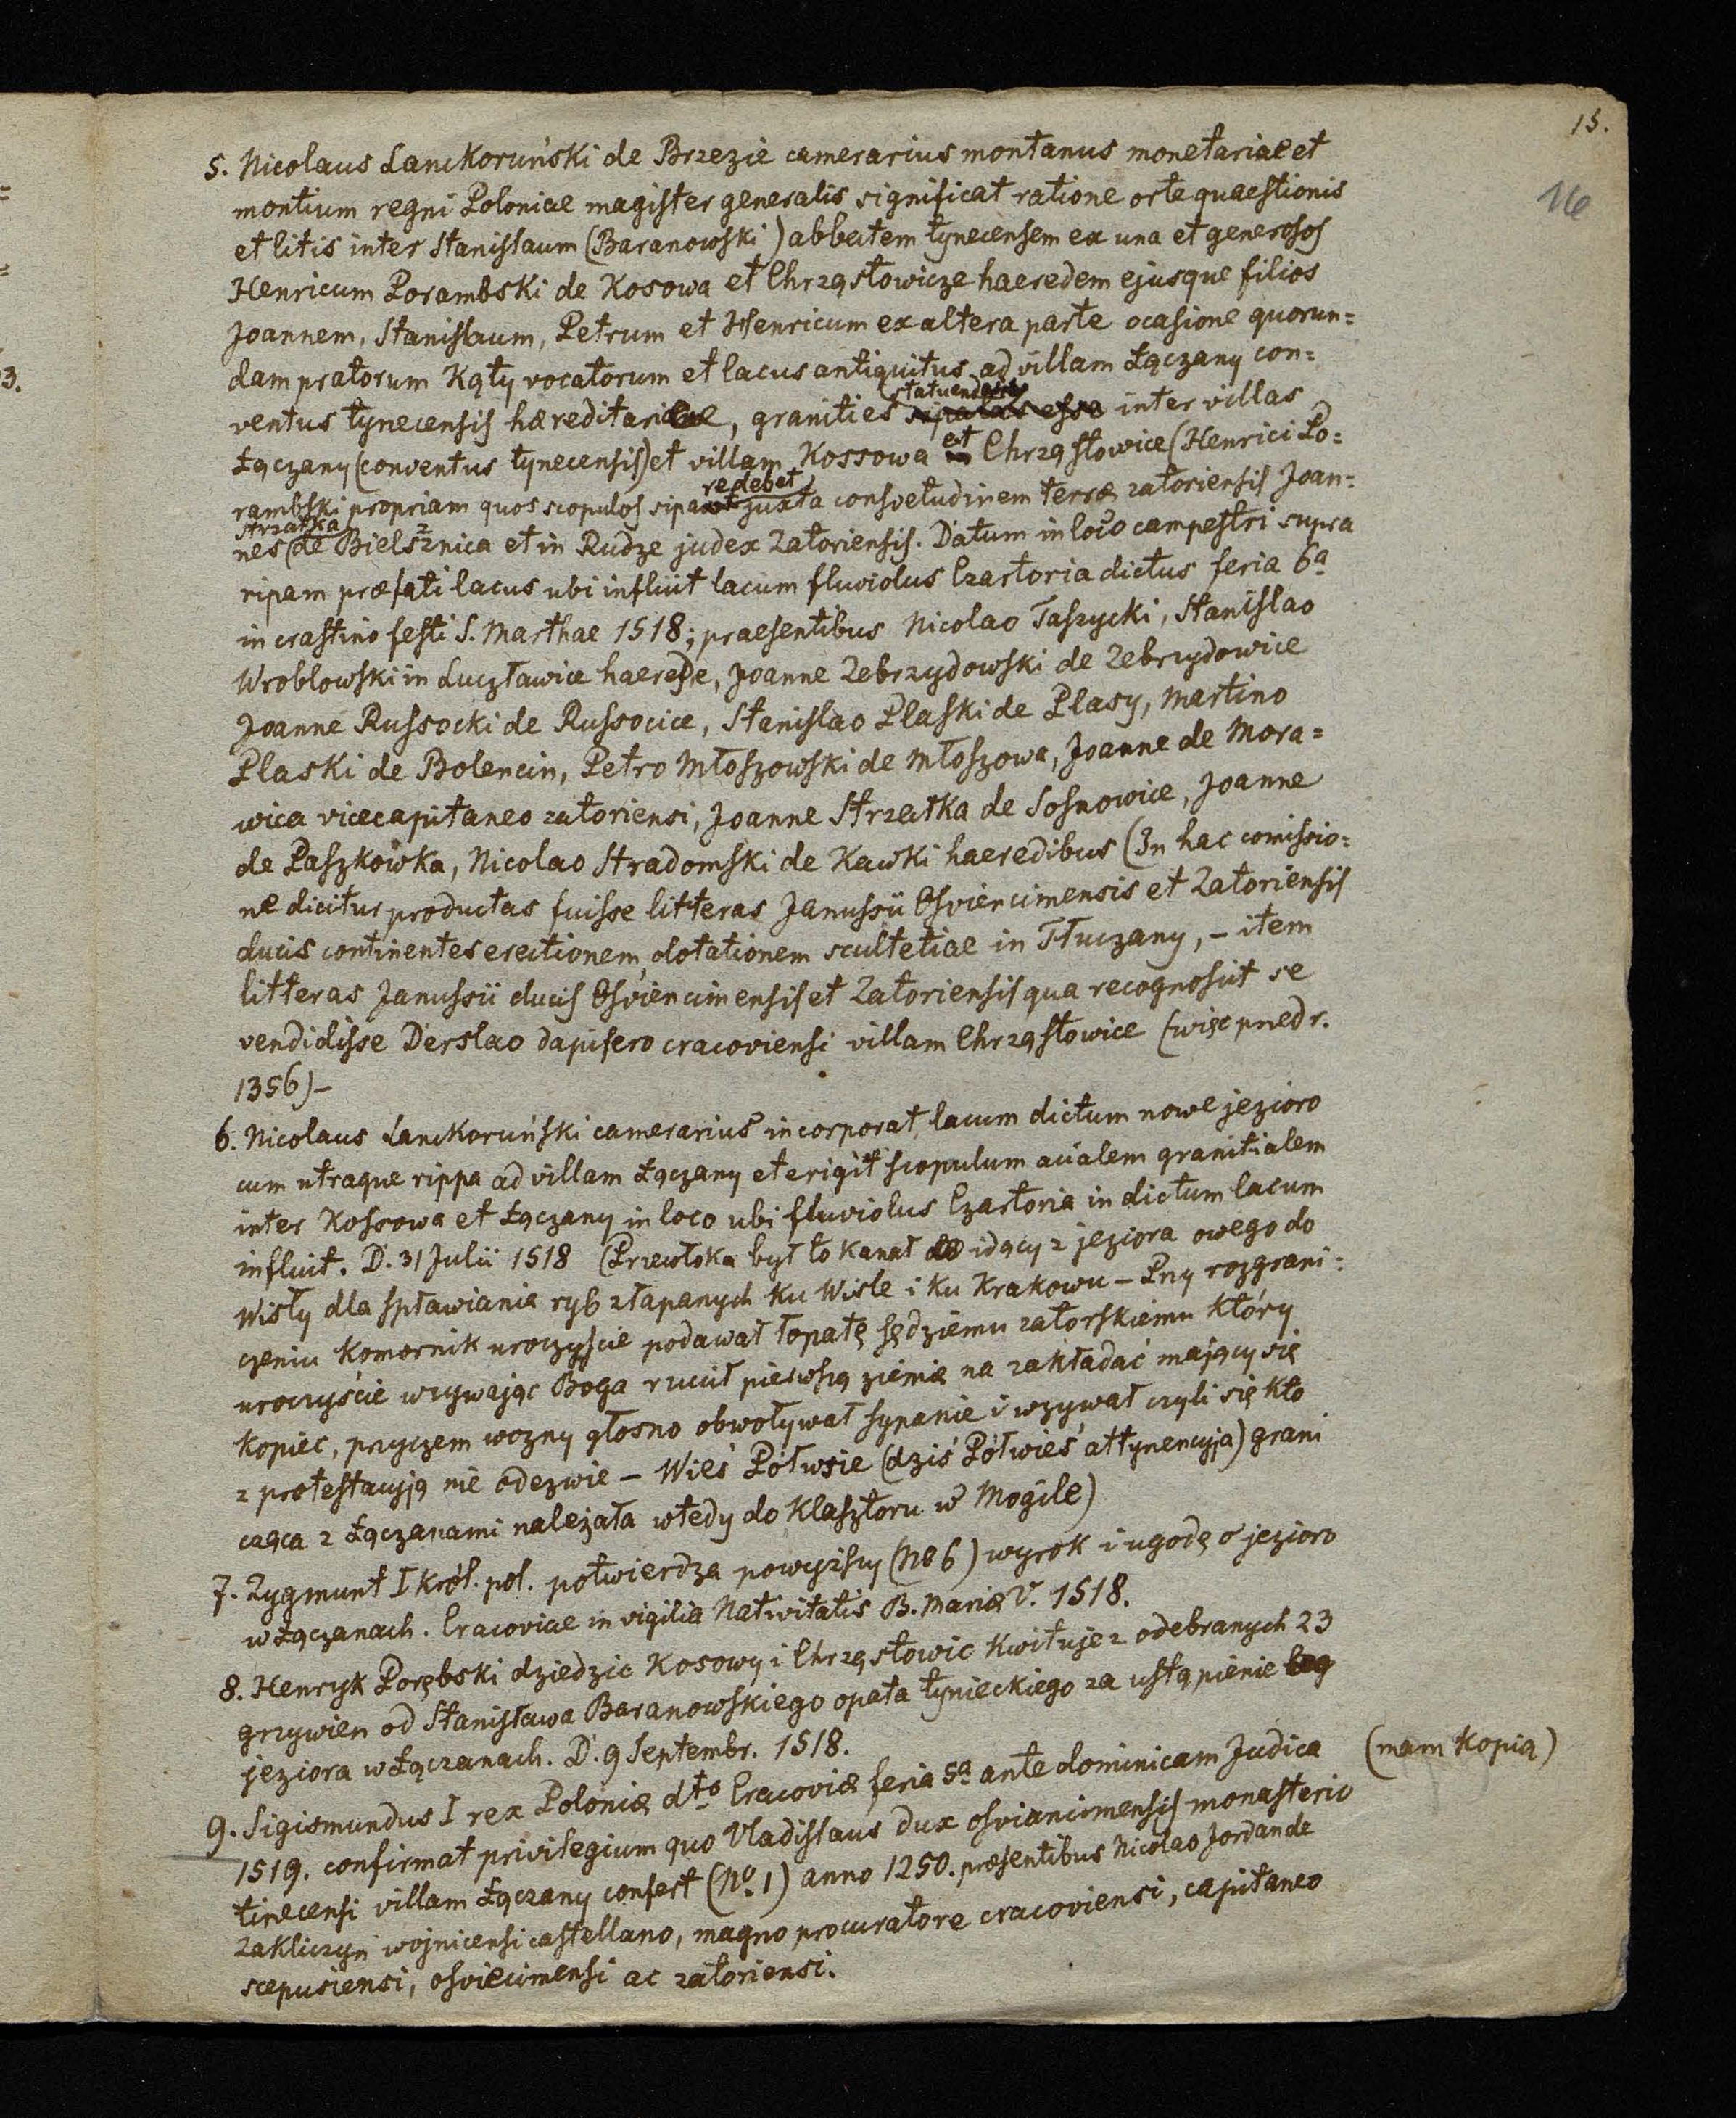 15.
16
3.
5. Nicolaus Lanckoruński de Brzezie camerarius montanus monetariae et
montium regni Poloniae magister generalis significat ratione orte quaestionis
et litis inter Stanislaum (Baranowski) abbatem tynecensem ex una et generosos
Henricum Porambski de Kosowa et Chrząstowicze haeredem ejusque filios
Joannem, Stanislaum, Petrum et Henricum ex altera parte ocasione quorun=
dam pratorum Kąty vocatorum et lacus antiquitus ad villam Łączany con=
ventus tynecensis haereditariae, granities statuendas inter villas
Łączany (conventus tynecensis) et villam Kossowa et Chrząstowice (Henrici Po=
rambski propriam quos scopulos sipare debet juxta consvetudinem terræ zatoriensis Joan=
nes Strzałka (de Bielsznica et in Rudze judex Zatoriensis. Datum in loco campestri supra
ripam præfati lacus ubi influit lacum fluviolus Czartoria dictus feria 6a
in crastino festi S. Marthae 1518; praesentibus Nicolao Taszycki, Stanislao
Wroblowski in Lucztawice haerede, Joanne Zebrzydowski de Zebrzydowice
Joanne Russocki de Russocice, Stanislao Plaski de Plasy, Martino
Plaski de Bolencin, Petro Młoszowski de Młoszowa, Joanne de Mora=
wica vicecapitaneo zatoriensi, Joanne Strzałka de Sosnowice, Joanne
de Paszkowka, Nicolao Stradomski de Kawki haeredibus (In hac comissio=
ne dicitur productas fuisse litteras Janussii Osviencimensis et Zatoriensis
ducis continentes erectionem, dotationem scultetiae in Tłuczany, - item
litteras Janussii ducis Osviencimensis et Zatoriensis qua recognoscit se
vendidisse Derslao dapifero cracoviensi villam Chrząstowice (więc przed r.
1356) -
6. Nicolaus Lanckoruński camerarius incorporat lacum dictum nowe jezioro
cum utraque rippa ad villam Łączany et erigit scopulum acialem granitialem
inter Kossowa et Łączany in loco ubi fluviolus Czartoria in dictum lacum
influit. D. 31 Julii 1518 (Przewłoka był to kanał idący z jeziora owego do
Wisły dla spławiania ryb złapanych ku Wiśle i ku Krakowu - Przy rozgrani=
czeniu komornik uroczyście podawał łopatę sędziemu zatorskiemu który
uroczyście wzywając Boga rzucił pierwszą ziemię na zakładać mający się
kopiec, przyczem wozny głosno obwoływał sypanie i wzywał czyli się kto
z protestacyją nie odezwie - Wieś Półwsie (dziś Półwieś attynencyja) grani
cząca z Łączanami należała wtedy do klasztoru w Mogile)
7. Zygmunt I król. pol. potwierdza powyższy (No 6) wyrok i ugodę o jezioro
w Łączanach. Cracoviae in vigilia Nativitatis B. Mariæ V. 1518.
8. Henryk Porębski dziedzic Kosowy i Chrząstowic kwituje z odebranych 23
grzywien od Stanisława Baranowskiego opata tynieckiego za ustąpienie
jeziora w Łączanach. D. 9 Septembr. 1518.
9. Sigismundus I rex Poloniæ dto Cracoviæ feria 5a ante dominicam Judica (mam kopią)
1519. confirmat privilegium quo Vladislaus dux osviancimensis monasterio
tinecensi villam Łączany confert (No. 1) anno 1250. præsentibus Nicolao Jordan de
Zakliczyn wojnicensi castellano, magno procuratore cracoviensi, capitaneo
scepusiensi, osviecimensi ac zatoriensi.